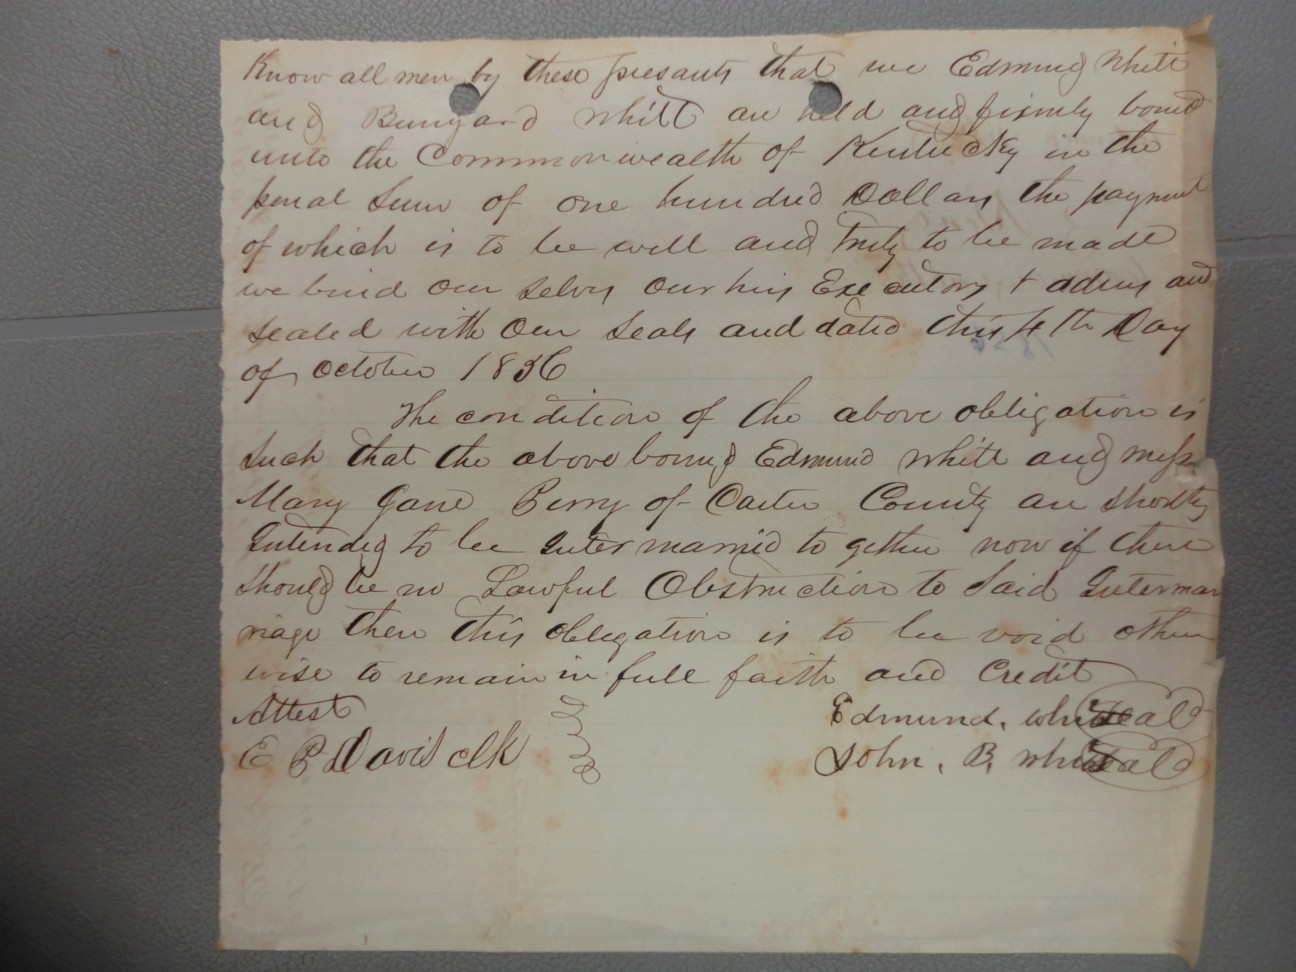 Know all men by these presants that we Edmund Whitt
and Bunyard Whitt are held and firmly bound
unto the Commonwealth of Kentucky in the
penal Sum of one hundred Dollars the payment
of which is to be well and Truly to be made
we bind our selvs our hirs Executors + adms and
sealed with our Seals and dated this 4th Day
of october 1856
The condition of the above obligation is
Such that the above bound Edmund Whitt and miss
Mary Jane Perry of Carter County are shortly
Intended to be Intermarried to gether now if there
should be no Lawful Obstruction to Said Intermar
riage then this obligation is to be void other
wise to remain in full faith and Credit
Attest
Edmund. Whitt Seal
E B Davis clk
John. B. Whitt Seal